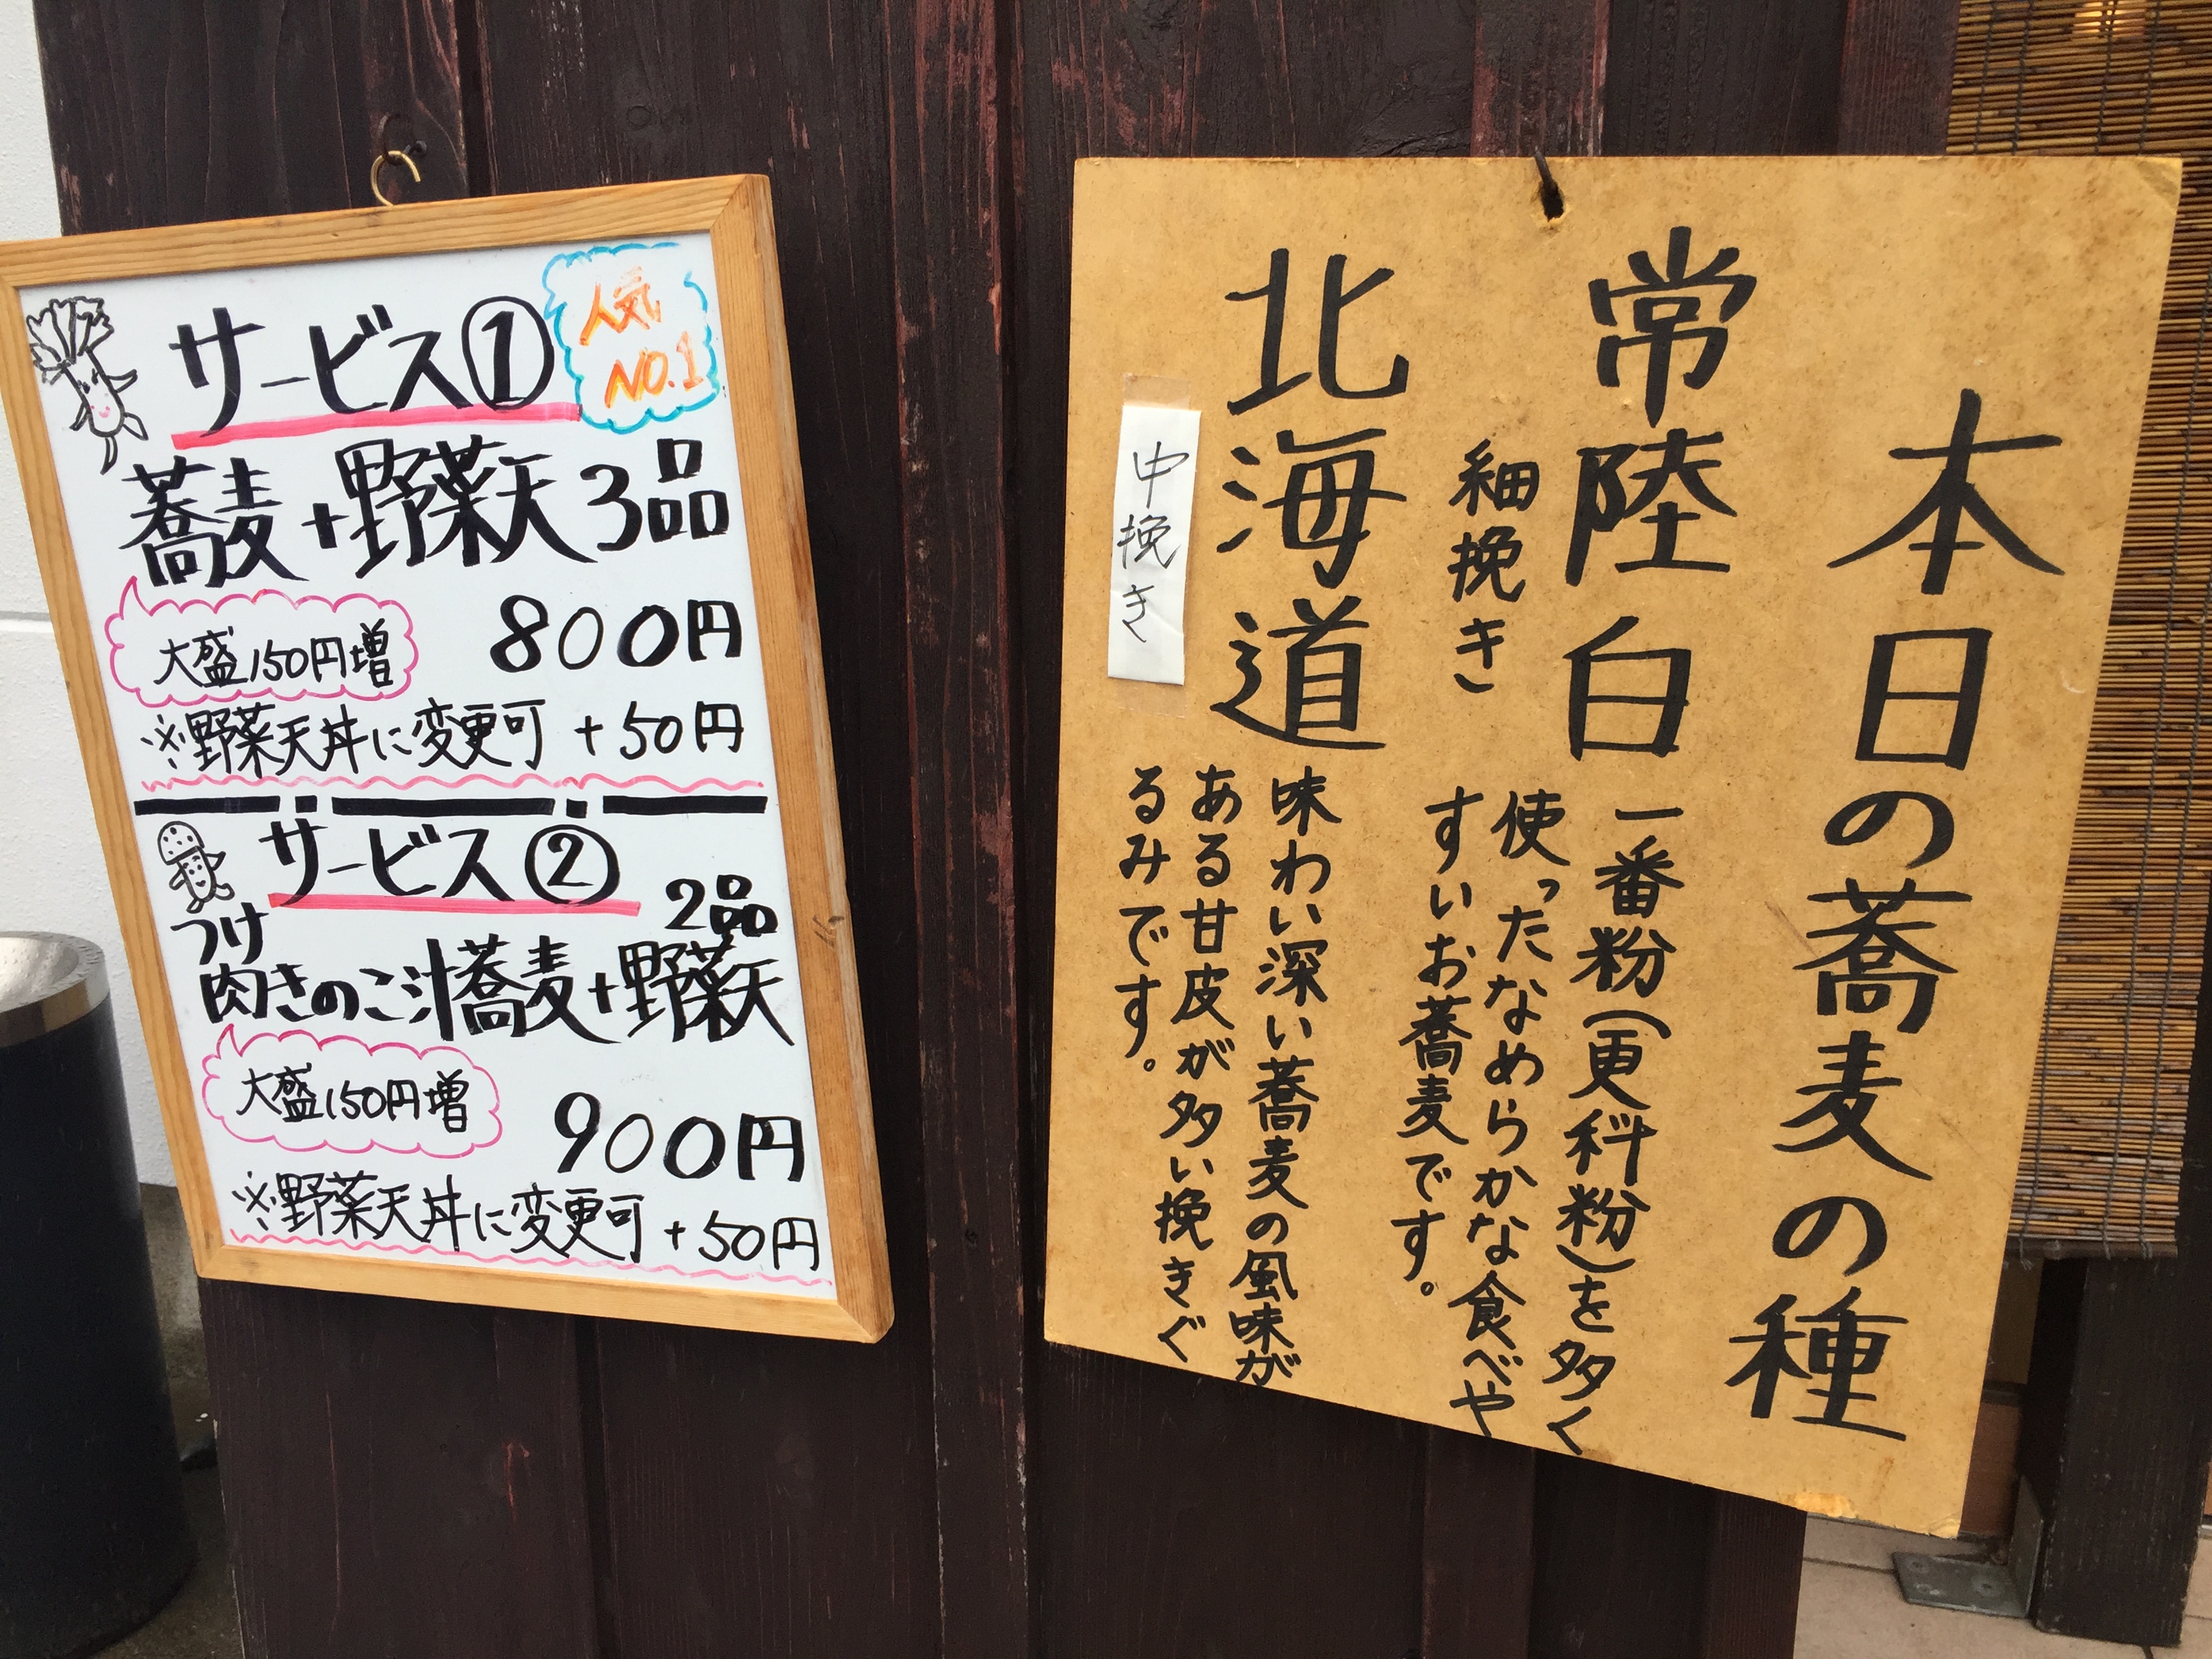 サービス①
人気
NO.1
蕎麦+野菜天3品
800円
大盛150円増
※野菜天丼に変更可 +50円
サービス②
つけ
肉きのこ汁蕎麦+野菜天
2品
大盛150円増
900円
※野菜天丼に変更可 +50円
本日の蕎麦の種
常陸白
細挽き
一番粉(更科粉)を多く
使ったなめらかな食べや
すいお蕎麦です。
北海道
中挽き
味わい深い蕎麦の風味が
ある甘皮が多い挽きぐ
るみです。